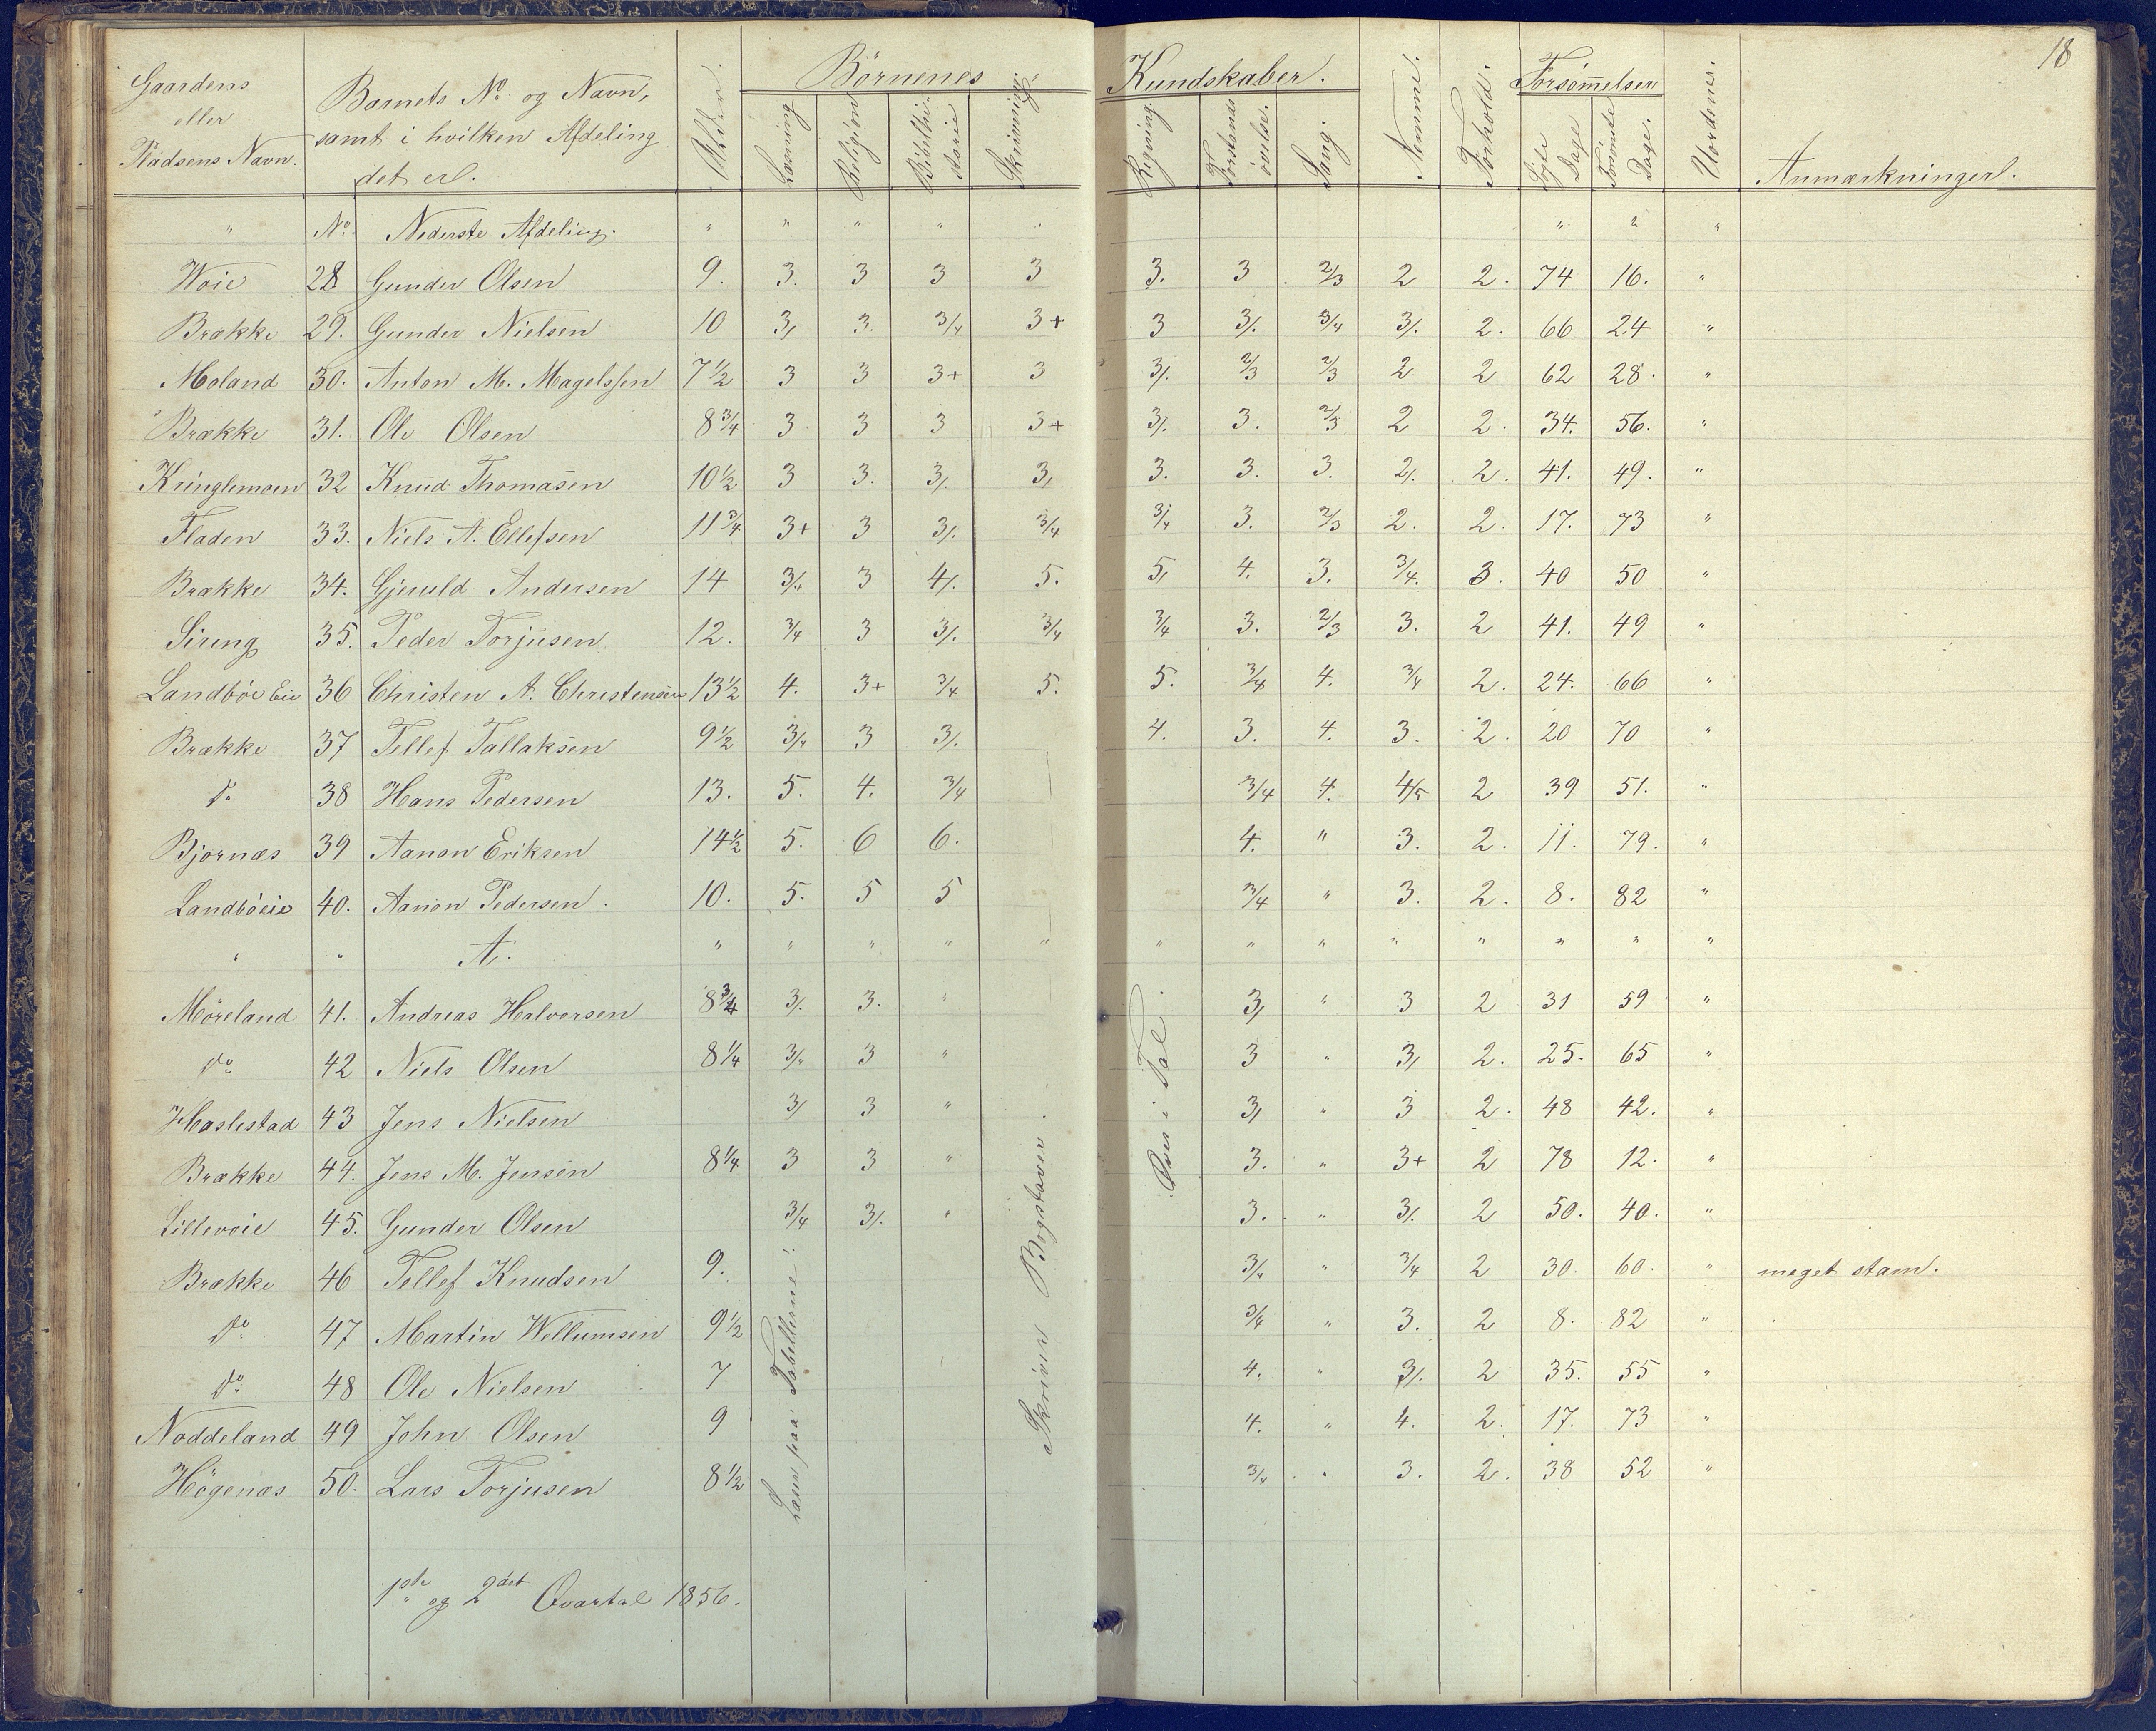 18
Gaardens eller Pladsens Navn. | Barnets No og Navn, samt i hvilken Afdeling det er. | Alder. | Börnenes Kundskaber. | Nemme. | Forhold. | Forsömmelser | Uordener. | Anmærkninger.
Læsning | Religion | Bibelhistorie | Skrivning | Regning. | Forstands övelse. | Sang. | Sögte Dage | Forsömte Dage.
" | No | Nederste Afdeling. | " | " | " | " | " | " | " | "
Woie | 28 | Gunder Olsen | 9. | 3. | 3 | 3 | 3 | 3. | 3 | 2/3 | 2 | 2. | 74 | 16. | "
Brække | 29. | Gunder Nielsen | 10 | 3/ | 3. | 3/4 | 3+ | 3 | 3/. | 3/4 | 3/. | 2. | 66 | 24 | "
Moland | 30. | Anton M. Magelssen | 7 1/2 | 3 | 3 | 3+ | 3 | 3/. | 2/3 | 2/3 | 2 | 2 | 62 | 28. | "
Brække | 31. | Ole Olsen | 8 3/4 | 3 | 3 | 3 | 3+ | 3/. | 3. | 2/3 | 2 | 2. | 34. | 56. | "
Kringlemoen | 32 | Knud Thomasen | 10 1/2 | 3 | 3. | 3/. | 3/ | 3. | 3. | 3. | 2/. | 2. | 41. | 49. | "
Fladen | 33. | Niels A. Ellefsen | 11 3/4 | 3+ | 3 | 3/. | 3/4 | 3/4 | 3. | 2/3 | 2. | 2. | 17. | 73 | "
Brække | 34. | Gjeruld Andersen | 14 | 3/. | 3 | 4/. | 5. | 5/ | 4. | 3. | 3/4. | 3. | 40 | 50 | "
Sireng | 35. | Peder Torjusen | 12. | 3/4 | 3 | 3/. | 3/4 | 3/4 | 3. | 2/3 | 3. | 2 | 41. | 49 | "
Landböe Eie | 36 | Christen A. Christensen | 13 1/2 | 4. | 3+ | 3/4 | 5. | 5. | 3/4 | 4. | 3/4 | 2. | 24. | 66 | "
Brække | 37 | Tellef Tallaksen | 9 1/2 | 3/. | 3 | 3/. | 4. | 3. | 4. | 3. | 2. | 20 | 70 | "
do | 38 | Hans Pedersen | 13. | 5. | 4. | 3/4 | 3/4 | 4. | 4/5 | 2 | 39 | 51. | "
Bjornæs | 39 | Aanon Eriksen | 14 1/2 | 5. | 6 | 6. | 4. | " | 3. | 2. | 11. | 79. | "
Landböeie | 40. | Aanon Pedersen. | 10. | 5. | 5 | 5 | 3/4 | " | 3. | 2. | 8. | 82 | "
" | " | A. | " | " | " | " | " | " | " | " | " | " | " | " | "
Möreland | 41. | Andreas Halvorsen | 8 3/4 | 3/. | 3. | " | 3/ | " | 3 | 2 | 31 | 59 | "
do | 42 | Niels Olsen | 8 1/4 | 3/. | 3 | " | 3 | " | 3/ | 2. | 25. | 65 | "
Haslestad | 43 | Jens Nielsen | 3/ | 3 | " | 3/ | " | 3 | 2. | 48 | 42. | "
Brække | 44. | Jens M. Jensen | 8 1/4 | 3 | 3 | " | 3. | " | 3+ | 2 | 78 | 12. | "
Lillevoie | 45. | Gunder Olsen | 3/4 | 3/. | " | 3. | " | 3/. | 2 | 50. | 40. | "
Brække | 46 | Tellef Knudsen | 9. | 3/. | " | 3/4 | 2 | 30. | 60. | " | meget stam.
do | 47 | Martin Wellumsen | 9 1/2 | 3/4 | " | 3. | 2 | 8. | 82 | "
do | 48 | Ole Nielsen | 7 | 4. | " | 3/. | 2 | 35. | 55 | "
Noddeland | 49 | John Olsen | 9 | 4. | " | 4. | 2. | 17. | 73 | "
Högenæs | 50. | Lars Torjusen | 8 1/2 | 3/4 | " | 3. | 2. | 38 | 52 | "
Læser paa Tabellerne.
Skriver Bogstaver.
i Tal.
1ste og 2det Qvartal 1856.